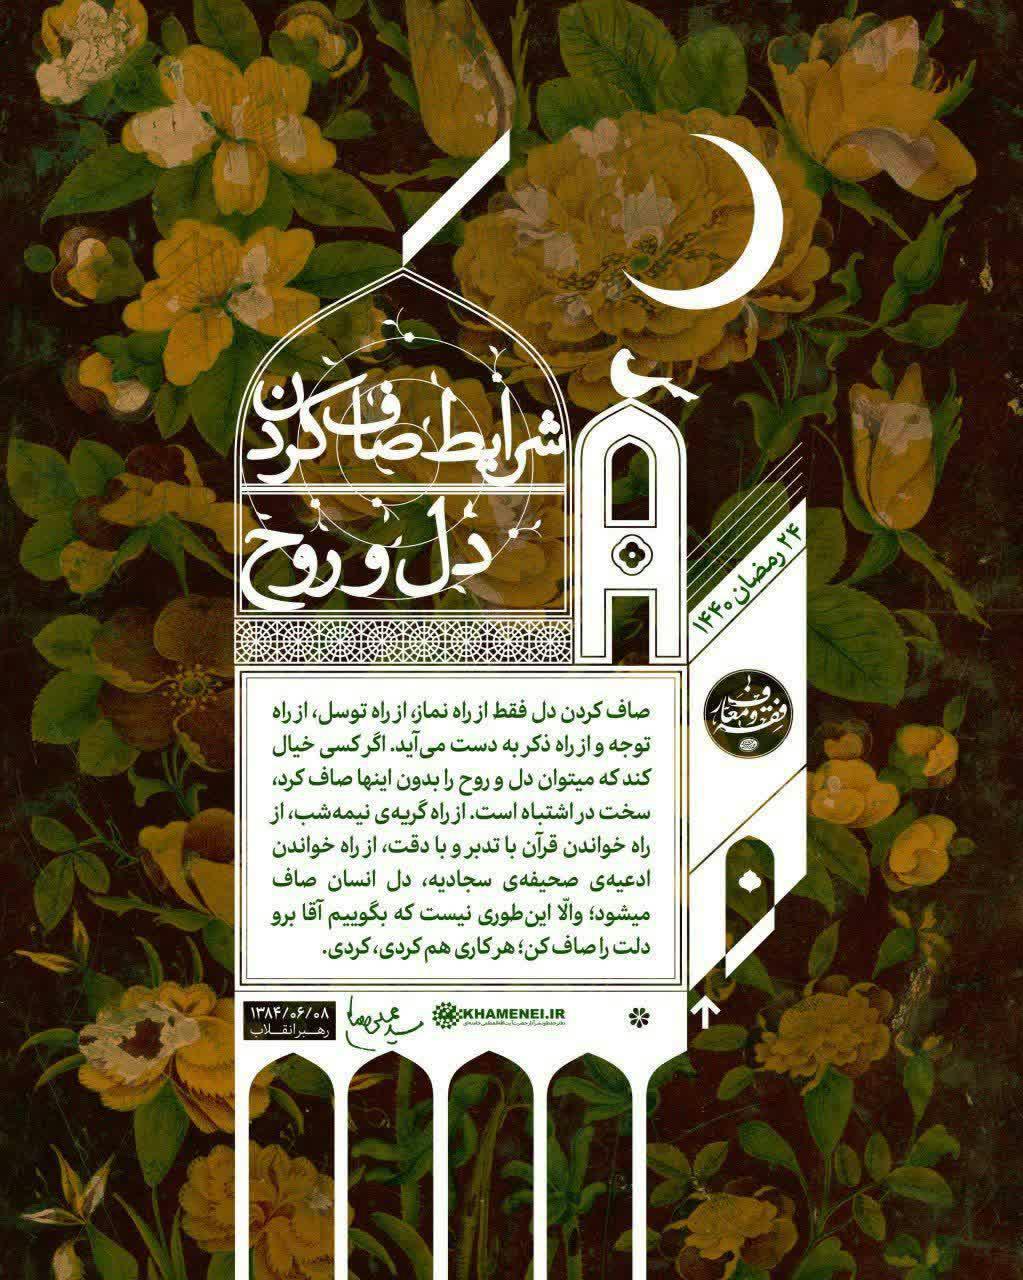 شرایط صاف کردن
دل و روح
۲۴ رمضان ۱۴۴۰
فقه و معارف
صاف کردن دل فقط از راه نماز، از راه توسل، از راه
توجه و از راه ذکر به دست می‌آید. اگر کسی خیال
کند که میتوان دل و روح را بدون اینها صاف کرد،
سخت در اشتباه است. از راه گریه‌ی نیمه‌شب، از
راه خواندن قرآن با تدبر و با دقت، از راه خواندن
ادعیه‌ی صحیفه‌ی سجادیه، دل انسان صاف
میشود؛ والّا این‌طوری نیست که بگوییم آقا برو
دلت را صاف کن؛ هر کاری هم کردی، کردی.
۱۳۸۴/۰۶/۰۸
رهبر انقلاب
KHAMENEI.IR